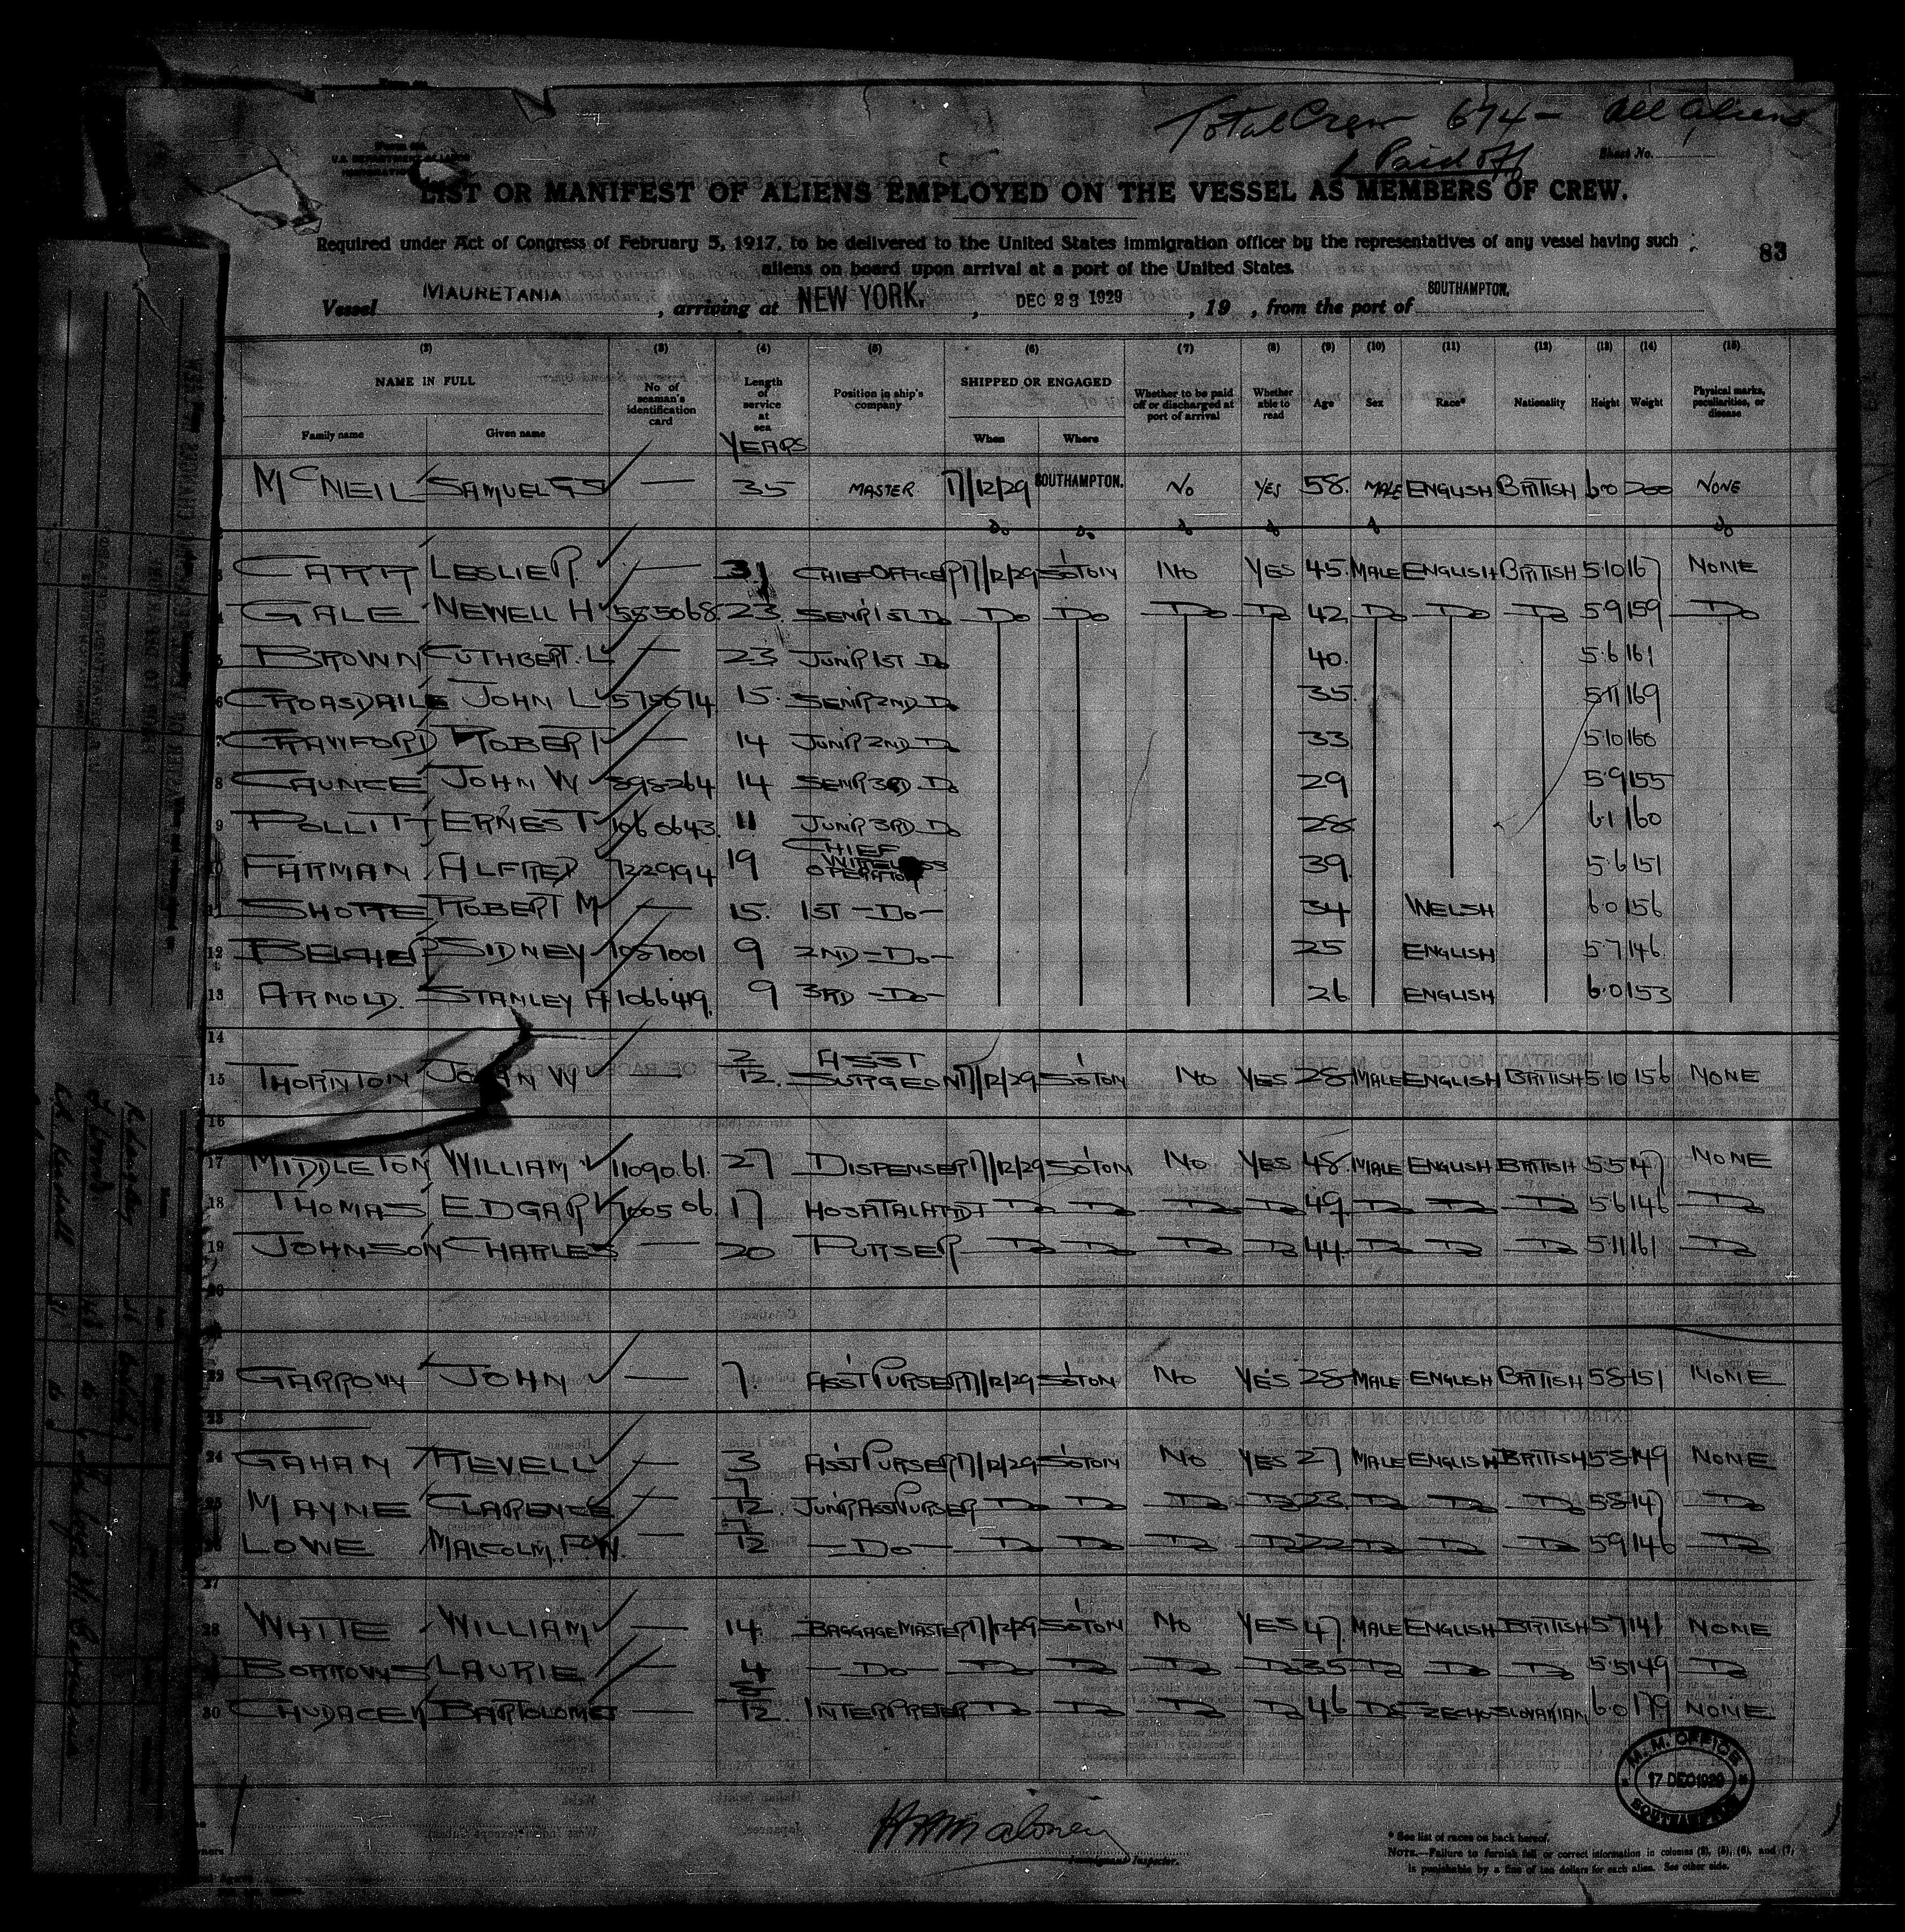 Total Crew 674 - All Aliens
1 Paid off
Sheet No.
U.S. DEPARTMENT OF LABOR
LIST OR MANIFEST OF ALIENS EMPLOYED ON THE VESSEL AS MEMBERS OF CREW.
Required under Act of Congress of February 5, 1917, to be delivered to the United States immigration officer by the representatives of any vessel having such
aliens on board upon arrival at a port of the United States.
83
Vessel MAURETANIA, arriving at NEW YORK, DEC 23 1929, 19 , from the port of SOUTHAMPTON,
(3) (4) (5) (6) (7) (8) (9) (10) (11) (12) (13) (14) (15)
NAME IN FULL No. of seaman's identification card Length of service at sea Position in ship's company SHIPPED OR ENGAGED Whether to be paid off or discharged at port of arrival Whether able to read Age Sex Race* Nationality Height Weight Physical marks, peculiarities, or disease
Family name Given name YEARS When Where
McNEIL SAMUEL GS — 35 MASTER 17/12/29 SOUTHAMPTON. No YES 58. MALE ENGLISH BRITISH 6.0 200 NONE
Do Do. Do Do Do Do
3 CARR LESLIE R. — 31 CHIEF OFFICER 17/12/29 SO'TON NO YES 45. MALE ENGLISH BRITISH 5.10 167 NONE
4 GALE NEWELL H 585068. 23. SENR 1ST DO DO DO DO DO 42 DO DO DO 5.9 159 DO
5 BROWN CUTHBERT. L — 23 JUNR 1ST DO 40. 5.6 161
6 CROASDAILE JOHN L 575674 15. SENR 2ND DO 35. 5.11 169
7 CRAWFORD ROBERT — 14 JUNR 2ND DO 33 5.10 160
8 CAUNCE JOHN W 14 SENR 3RD DO 29 5.9 155
9 POLLITT ERNEST 11 JUNR 3RD DO 28 6.1 160
10 FARMAN ALFRED 722994 19 CHIEF WIRELESS OPERATOR 39. 5.6 151
11 ROBERT M — 15. 1ST -DO- 34 WELSH 6.0 156
12 SIDNEY 9 2ND -DO- 25 ENGLISH 5.7 146.
13 ARNOLD. STANLEY A 1066419. 9 3RD -DO- 26 ENGLISH 6.0 153
14
15 THORNTON JOHN W — 2/12. ASST SURGEON 17/12/29 SO'TON NO YES 28 MALE ENGLISH BRITISH 5.10 156 NONE
16
17 MIDDLETON WILLIAM 1109061. 27 DISPENSER 17/12/29 SO'TON NO YES 48. MALE ENGLISH BRITISH 5.5 147 NONE
18 THOMAS EDGAR 17 HOSPITAL ATTDT DO DO DO DO 49. DO DO DO 5.6 146 DO
19 JOHNSON CHARLES — 20 PURSER DO DO DO DO 44. DO DO DO 5.11 161 DO
20
21
22 GARROW JOHN — 7. ASST PURSER 17/12/29 SO'TON NO YES 28 MALE ENGLISH BRITISH 5.8 151 NONE
23
24 GAHAN REVELL — 3 ASST PURSER 17/12/29 SO'TON NO YES 27 MALE ENGLISH BRITISH 5.8 149 NONE
25 MAYNE CLARENCE — 7/12. JUNR ASST PURSER DO DO DO DO 23. DO DO DO 5.8 147 DO
26 LOWE MALCOLM. F.W. — /12 -DO- DO DO DO DO 22 DO DO DO 5.9 146 DO
27
28 WHITE WILLIAM — 14. BAGGAGE MASTER 17/12/29 SO'TON NO YES 47. MALE ENGLISH BRITISH 5.7 141 NONE
29 BORROWS LAURIE — 4 -DO- DO DO DO DO 35 DO DO DO 5.5 149 DO
30 CHUDACEK BARTOLOMEJ — /12. INTERPRETER DO DO DO DO 46 DO CZECHOSLOVAKIAN 6.0 179 NONE.
M.M. OFFICE
17 DEC 1929
SOUTHAMPTON
Immigrant Inspector.
* See list of races on back hereof.
NOTE.—Failure to furnish full or correct information in columns (2), (5), (6), and (7),
is punishable by a fine of ten dollars for each alien. See other side.